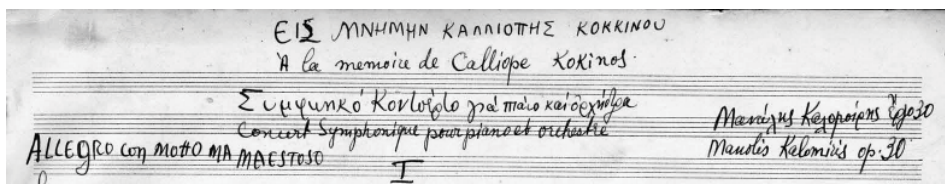 ΕΙΣ ΜΝΗΜΗΝ ΚΑΛΛΙΟΠΗΣ ΚΟΚΚΙΝΟΥ
A la memoire de Calliope Kokinos.
Συμφωνικό Κοντσέρτο γιά πιάνο καί ὀρχήστρα
Concert Symphonique pour piano et orchestre
Μανώλης Καλομοίρης ἔργο 30
Manolis Kalomiris op. 30
ALLEGRO con MOTTO MA MAESTOSO
I